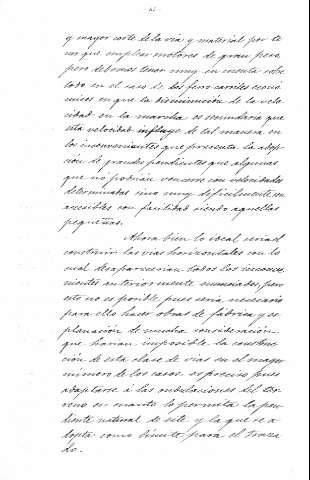 y mayor coste de la via y material por te
ner que emplear motores de gran peso,
pero debemos tener muy en cuenta sobre
todo en el caso de los ferro carriles econó
micos en que la disminución de la velo-
cidad en la marcha es secundaria que
esta velocidad influye de tal manera en
los inconvenientes que presenta la adop-
ción de grandes pendientes que algunas
que no podrian vencerse con velocidades
determinadas sino muy dificilmente, son
accesibles con facilidad siendo aquellas
pequeñas.
Ahora bien lo ideal seria el
construir las vias horizontales con lo
cual desaparecerian todos los inconve-
nientes anteriormente enunciados, pero
esto no es posible pues seria necesario
para ello hacer obras de fábrica y es-
planación de mucha consideración
que harian imposible la construc-
ción de esta clase de vias en el mayor
número de los casos. es preciso pues
adaptarse á las ondulaciones del ter-
reno en cuanto lo permita la pen-
diente natural de este y la que se a-
dopta como limite para el traza
do.